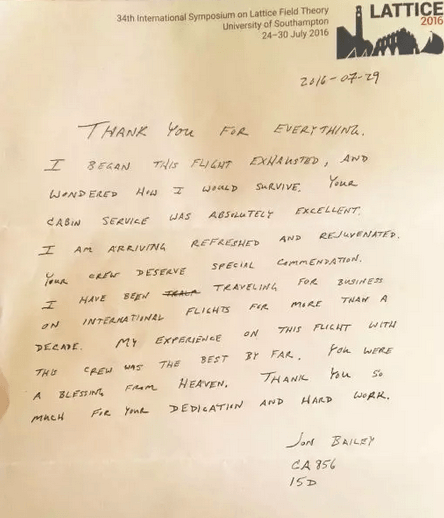 34th International Symposium on Lattice Field Theory
University of Southampton
24–30 July 2016
LATTICE
2016
2016-07-29
THANK YOU FOR EVERYTHING.
I BEGAN THIS FLIGHT EXHAUSTED, AND
WONDERED HOW I WOULD SURVIVE. YOUR
CABIN SERVICE WAS ABSOLUTELY EXCELLENT.
I AM ARRIVING REFRESHED AND REJUVENATED.
YOUR CREW DESERVE SPECIAL COMMENDATION.
I HAVE BEEN TRAVELING FOR BUSINESS
ON INTERNATIONAL FLIGHTS FOR MORE THAN A
DECADE. MY EXPERIENCE ON THIS FLIGHT WITH
THIS CREW WAS THE BEST BY FAR. YOU WERE
A BLESSING FROM HEAVEN. THANK YOU SO
MUCH FOR YOUR DEDICATION AND HARD WORK.
JON BAILEY
CA 856
15D